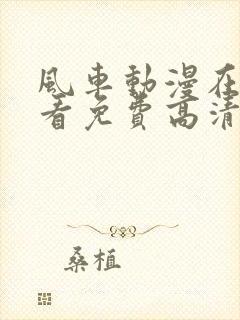 風車動漫在
看免費高清
桑植